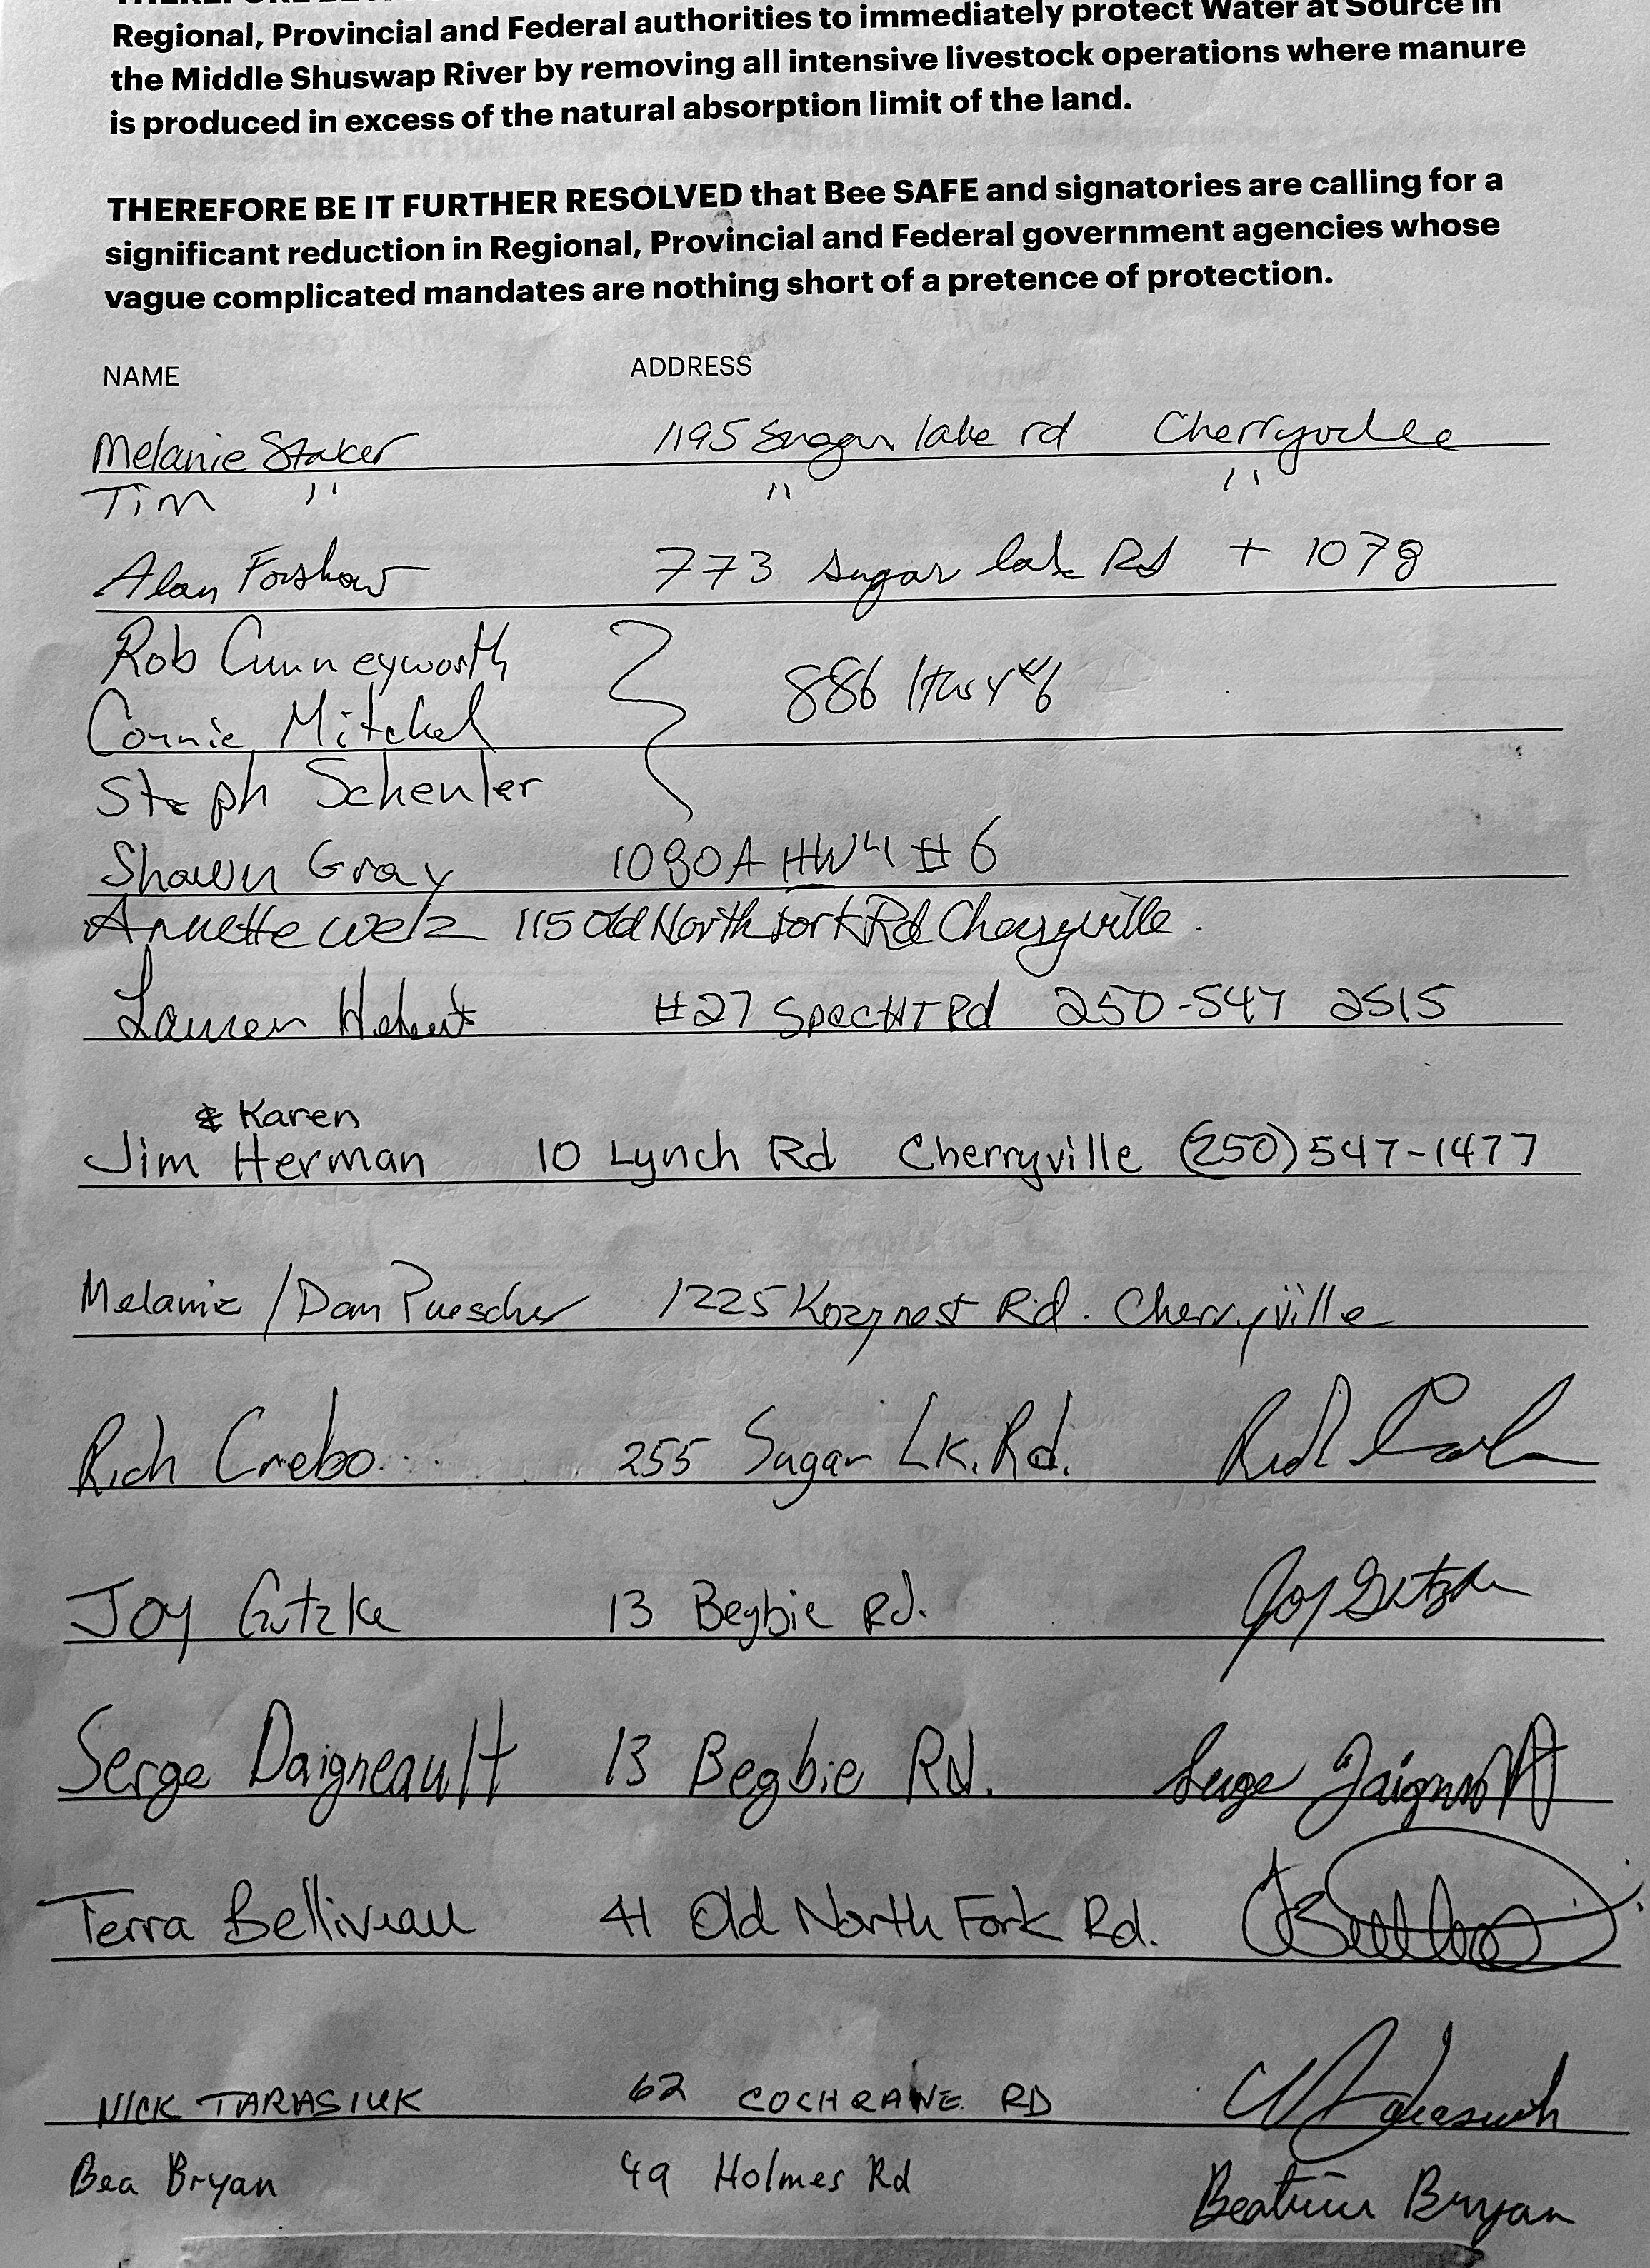 Regional, Provincial and Federal authorities to immediately protect Water at Source in
the Middle Shuswap River by removing all intensive livestock operations where manure
is produced in excess of the natural absorption limit of the land.
THEREFORE BE IT FURTHER RESOLVED that Bee SAFE and signatories are calling for a
significant reduction in Regional, Provincial and Federal government agencies whose
vague complicated mandates are nothing short of a pretence of protection.
NAME ADDRESS
Melanie Staker 1195 Sugar lake rd Cherryville
Tim " " "
Alan Forshaw 773 Sugar lak Rd + 1078
Rob Cunneyworth
886 Hwy #6
Connie Mitchel
Steph Scheuler
Shawn Gray 1080A HWY # 6
Annette Welz 115 Old North fork Rd Cherryville.
Lauren #27 Specht Rd 250-547 2515
& Karen
Jim Herman 10 Lynch Rd Cherryville (250) 547-1477
Melanie / Dan Puescher 1225 Kozynest Rd. Cherryville
Rich Crebo 255 Sugar Lk. Rd.
Joy Gutzke 13 Begbie Rd. Joy Gutzke
Serge Daigneault 13 Begbie Rd. Serge Daigneault
Terra Belliveau 41 Old North Fork Rd.
NICK TARASIUK 62 COCHRANE RD
Bea Bryan 49 Holmes Rd Beatrice Bryan